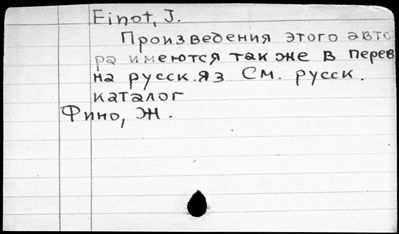 Einot, J.
Произведения этого авто
ра имеются также в перев
на русск. яз См. русск.
каталог
Фино, Ж.